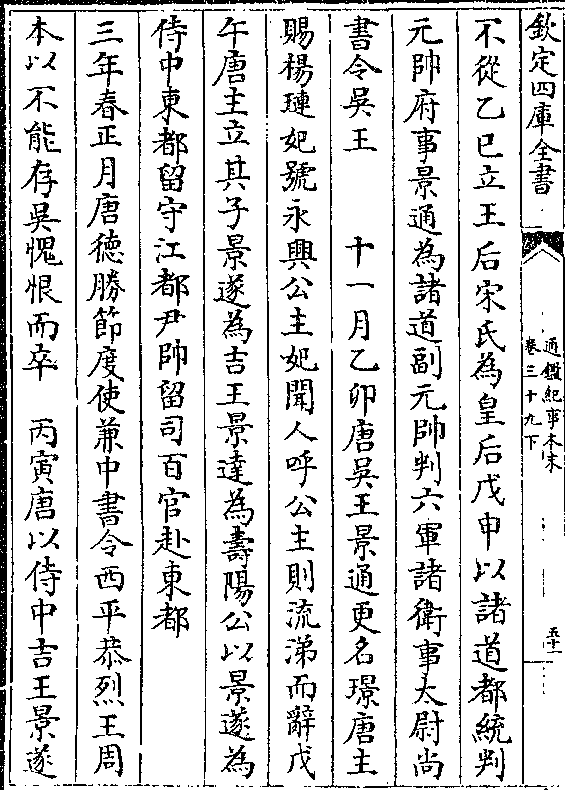 欽定四庫全書
通鑑紀事本末
卷三十九下
五十一
不從乙巳立王后宋氏為皇后戊申以諸道都統判
元帥府事景通為諸道副元帥判六軍諸衛事太尉尚
書令吳王　十一月乙卯唐吳王景通更名璟唐主
賜楊璉妃號永興公主妃聞人呼公主則流涕而辭戊
午唐主立其子景遂為吉王景達為壽陽公以景遂為
侍中東都留守江都尹帥留司百官赴東都
三年春正月唐德勝節度使兼中書令西平恭烈王周
本以不能存吳愧恨而卒　丙寅唐以侍中吉王景遂